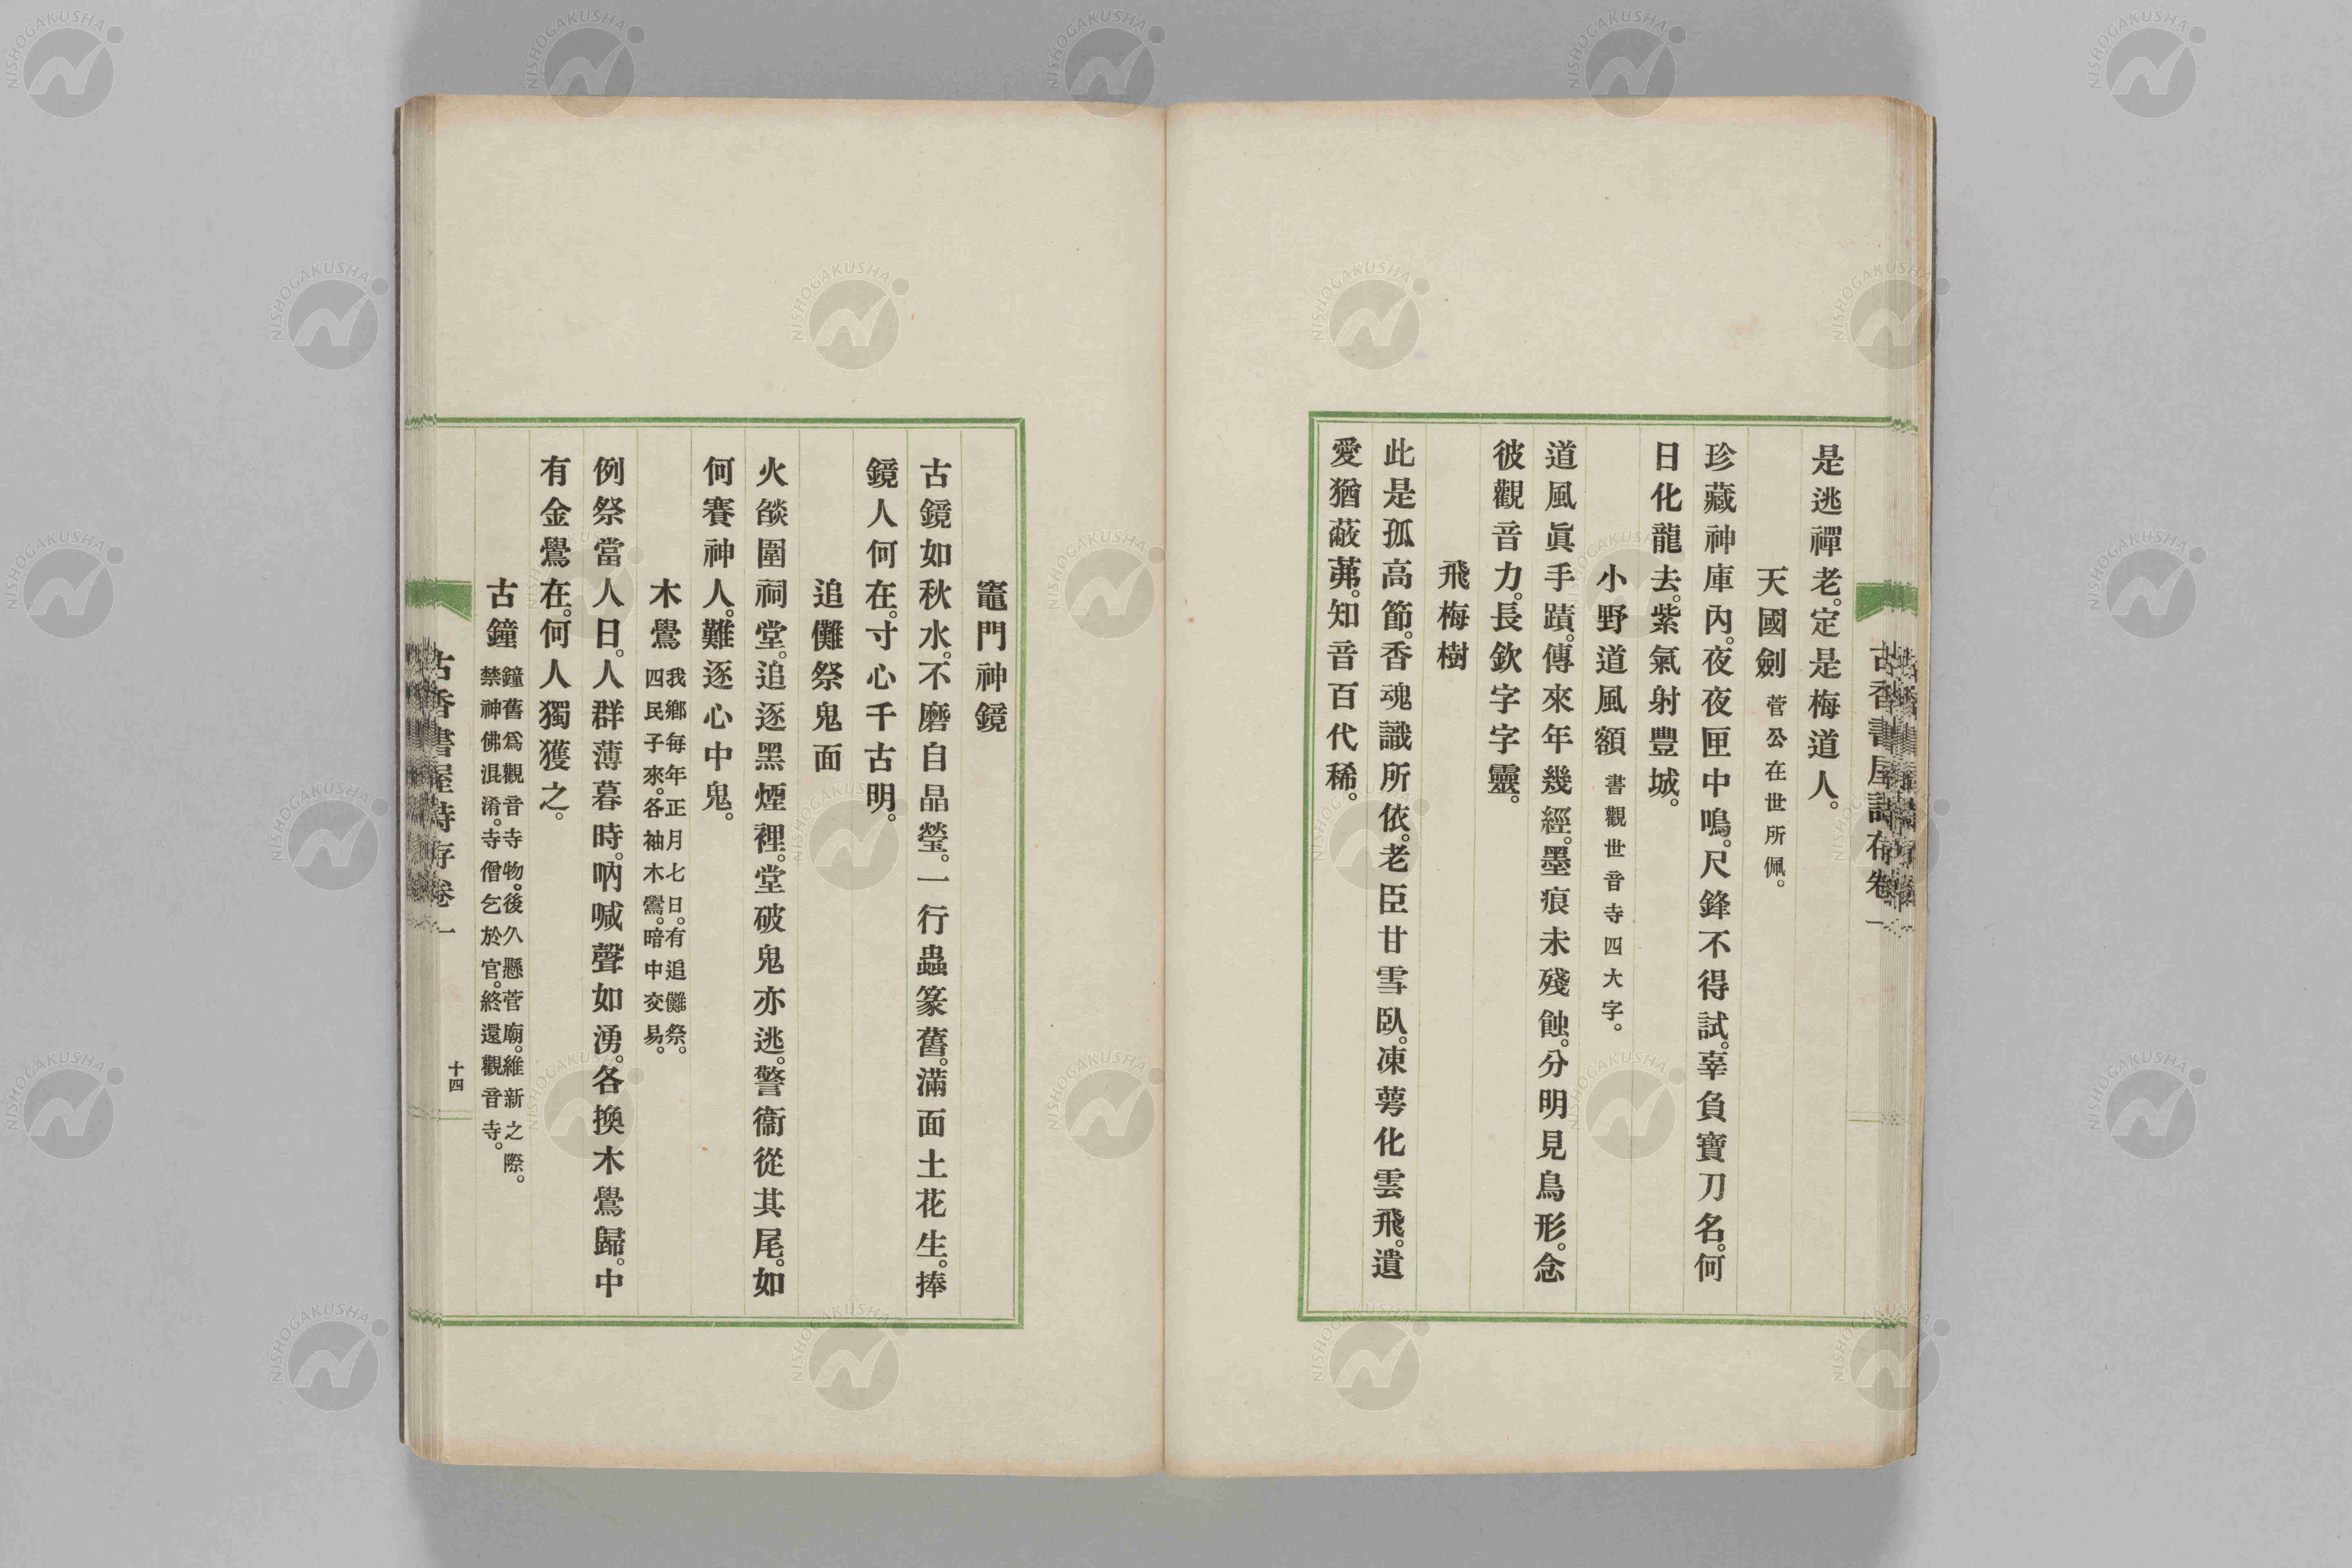 古香書屋詩存卷一
是逃禪老。定是梅道人。
天國劍 菅公在世所佩。
珍藏神庫內。夜夜匣中鳴。尺鋒不得試。辜負寶刀名。何
日化龍去。紫氣射豐城。
小野道風額 書觀世音寺四大字。
道風眞手蹟。傳來年幾經。墨痕未殘蝕。分明見鳥形。念
彼觀音力。長欽字字靈。
飛梅樹
此是孤高節。香魂識所依。老臣甘雪臥。凍萼化雲飛。遺
愛猶蔽芾。知音百代稀。
竈門神鏡
古鏡如秋水。不磨自晶瑩。一行蟲篆舊。滿面土花生。捧
鏡人何在。寸心千古明。
追儺祭鬼面
火燄圍祠堂。追逐黑煙裡。堂破鬼亦逃。警衞從其尾。如
何賽神人。難逐心中鬼。
木鷽 我鄉每年正月七日。有追儺祭。
四民子來。各袖木鷽。暗中交易。
例祭當人日。人群薄暮時。吶喊聲如湧。各換木鷽歸。中
有金鷽在。何人獨獲之。
古鐘 鐘舊爲觀音寺物。後久懸菅廟。維新之際。
禁神佛混淆。寺僧乞於官。終還觀音寺。
古香書屋詩存卷一
十四
NISHOGAKUSHA